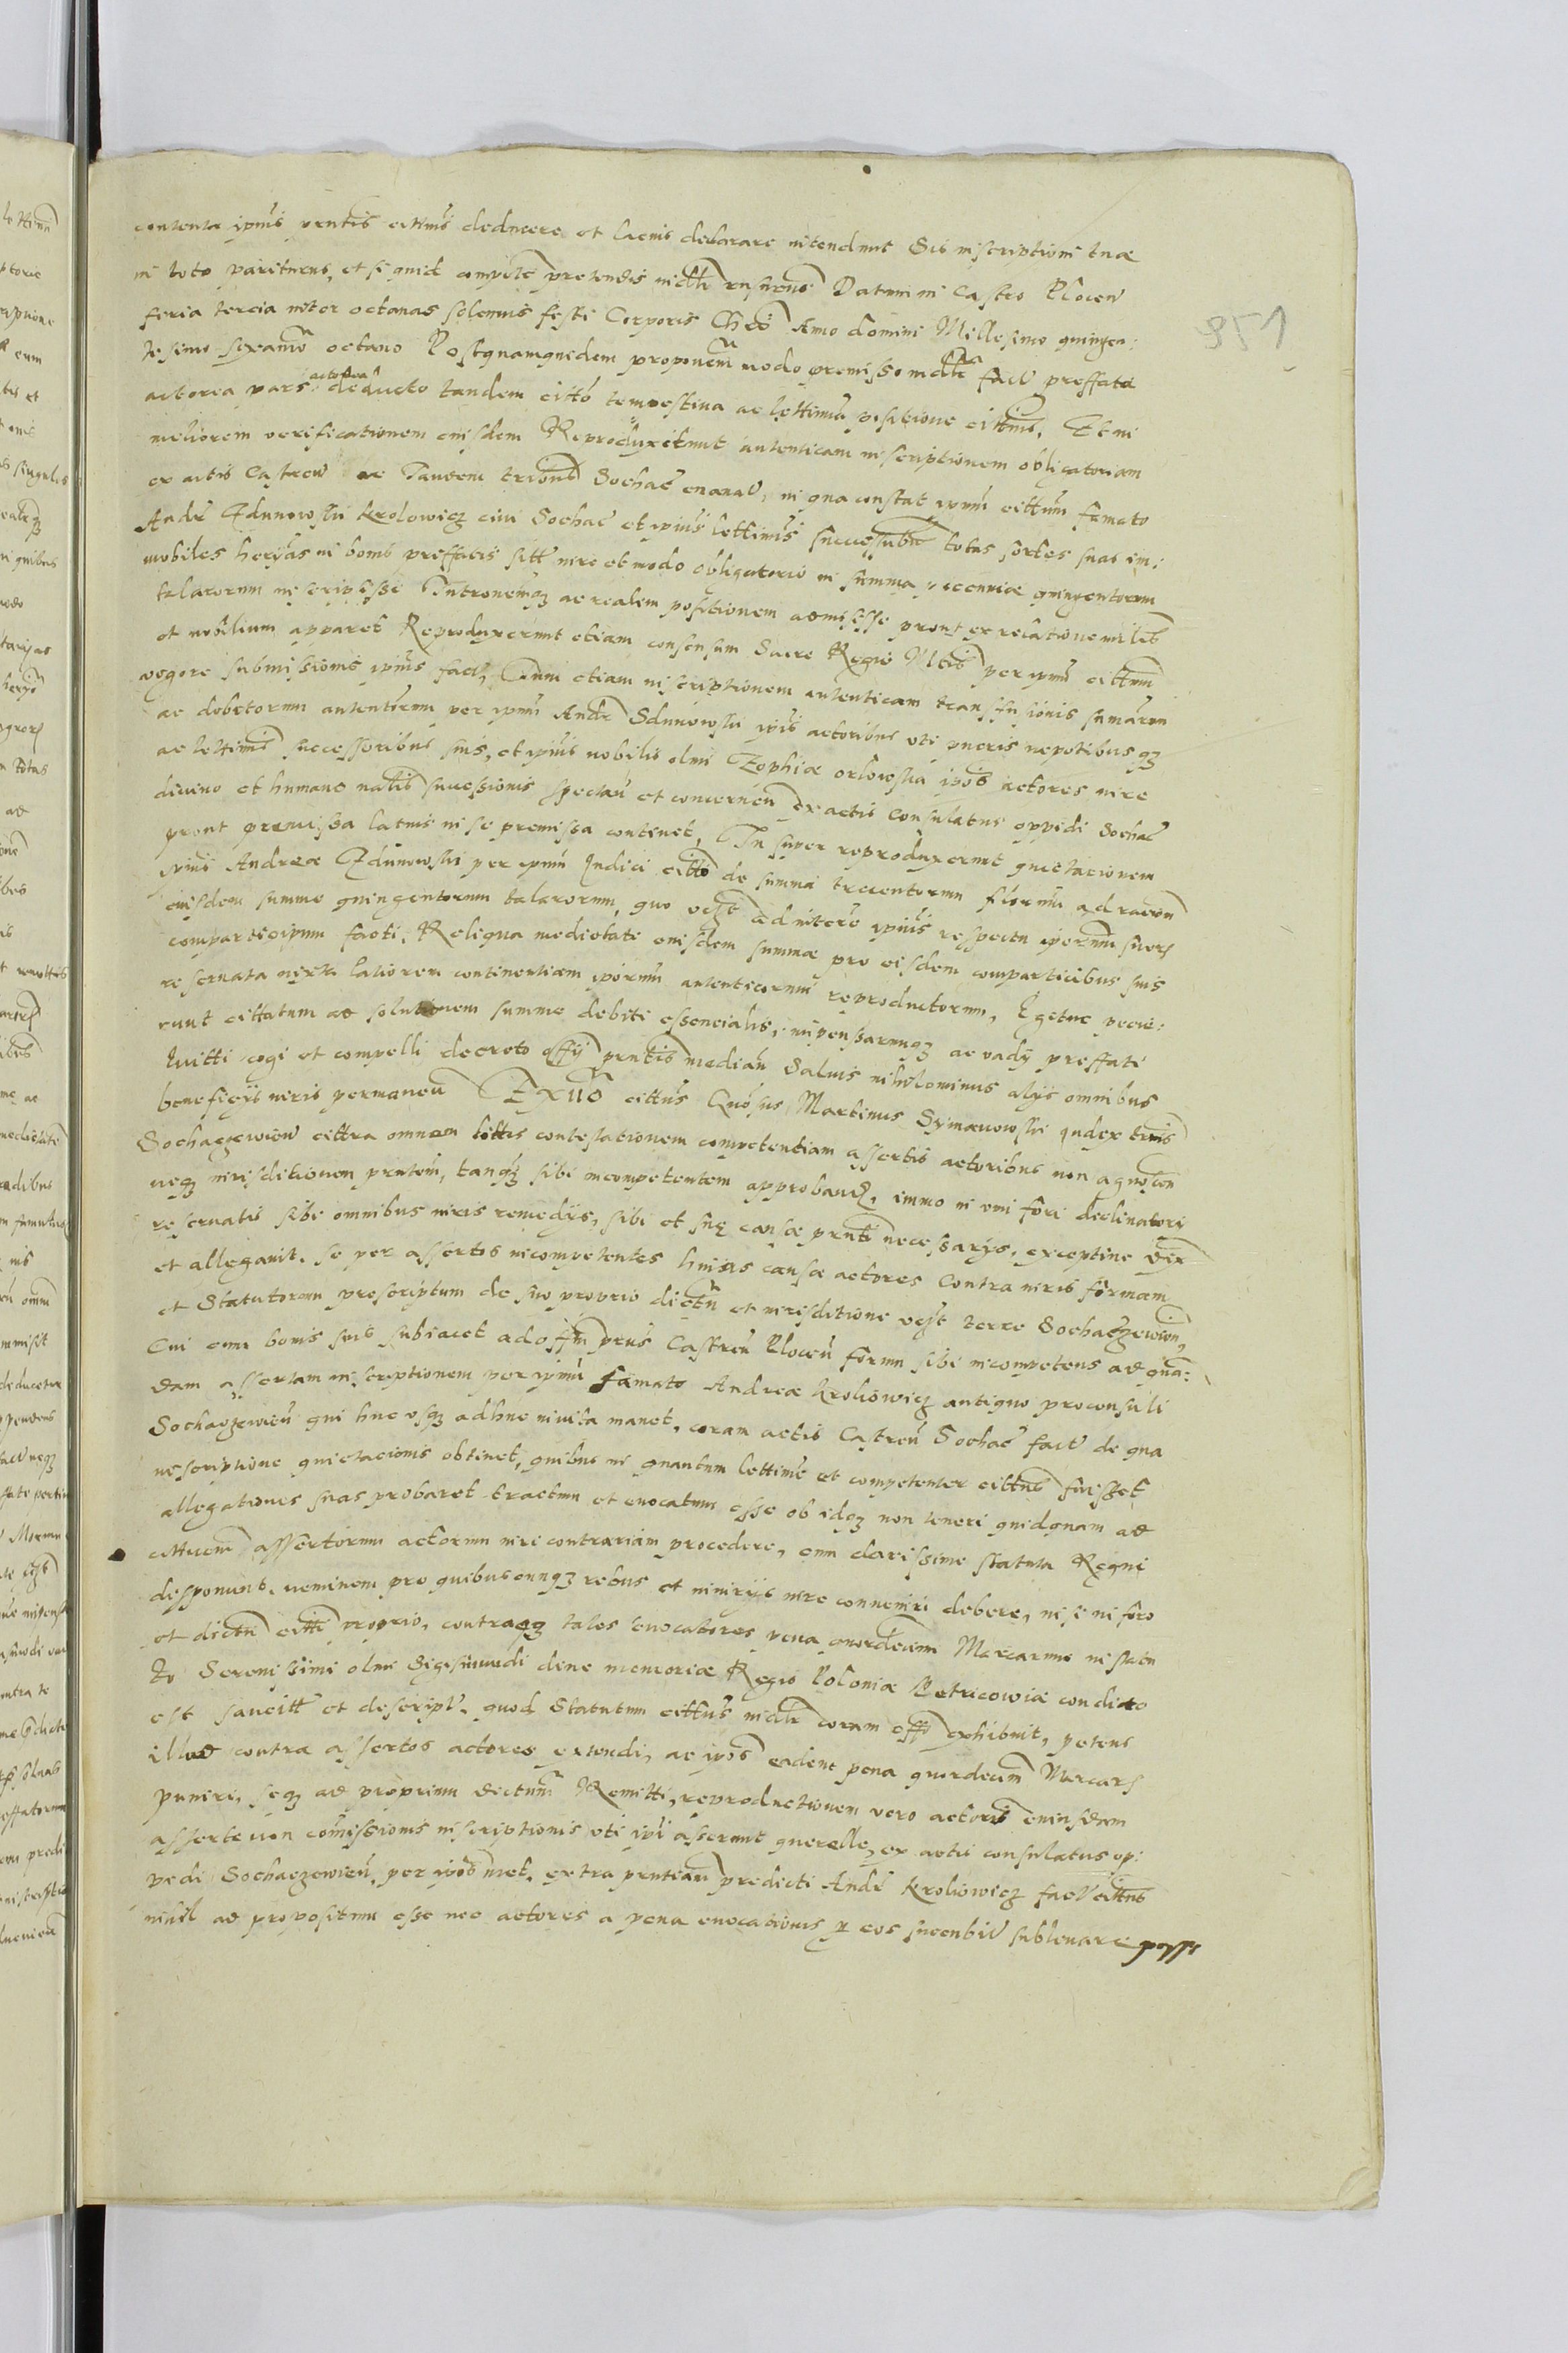 contenta ipius pntis cittnis deducere et lacius declarare intendunt Sis inscriptioni tuæ
in toto pariturus, et si quid compete pretendis indtr rnsurus Datum in Castro Plocen
feria tercia infra octauas solennis festi Corporis Chri Anno domini Millesimo quingen:
tesimo sexamo octauo Postquamquidem proponem modo premisso indtr fact preffata
actorea pars actorea deducto tandem citto tempestiua ac lettimā positione cittnis, Et in
meliorem verificationem eiusdem Reproduxerunt autenticam inscriptionem obligatoriam
ex actis Castren ac Tandem trebus Sochac emanat, in qua constat ipum cittum famato
Andr Zdunowski krolowicz ciui Sochac et ipius lettimis successubs totas sortes suas im:
mobiles herijas in bonis preffatis sitt iure et modo obligatorio in summa quingentorum
talarorum inscripsisse Intronemqz ac realem positionem admisisse prout ex relatione mlis
et nobilium apparet Reproduxerunt etiam consensum Sacre Regie Mtis per ipum cittum
vigore submissionis ipius fact, Cum etiam inscriptionem autenticam transfusionis sumarum
ac debitorum autentorum per ipum Andr Sdunowski ipis actoribus uti pueris nepotibus qz
ac lettimis successoribus suis, et ipius nobilis olim Zophiæ orlowska ipos actores iure
diuino et humano natlis successionis spectan et concernen ex actis Consulatus oppidi Sochac
prout premissa latius in se premissa continet, In super reproduxerunt quietacionem
ipius Andreæ Zdunowski per ipum Judici citto de summa trecentorum florenū ad racion
eiusdem summe quingentorum talarorum, quo vest ad iutere ipius respectu iporum suorz
comparticipum facti, Reliqua medietate eiusdem summæ pro eisdem comparticibus suis
reseruata iuxta latiorem continentiam iporum autenticorum reproductorum, Igetur pecie:
runt cittatum ad solutionem summe debiti essencialis, impensarumqz ac vadij preffati
luitti cogi et compelli decreto offij pntis median Saluis nihilominus alijs omnibus
beneficijs iuris permanen Ex uo cittus Gnosus Martinus Szimanowski Judex tris
Sochaczewien cittra omnem littis contestationem competentiam assertis actoribus non agnoscen
neqz iurisditionem pntem, tanqz sibi incompetentem approband, immo in vni fori declinatori
reseruatis sibi omnibus iuris remedijs, sibi et suę causæ pnti necessarijs, exceptine dix
et allegauit. se per assertos incompetentes huius causæ actores Contra iuris formam
et Statutorum prescriptum de suo proprio dictu et iurisditione vest terre Sochaczewien,
Cui cum bonis suis subiacet ad offm prns Castren Plocen forum sibi incompetens ad qua:
dam assertam inscriptionem per ipum famato Andreæ kroliowicz antiquo proconsuli
Sochaczewien qui huc vsqz adhuc inuita manet, coram actis Castren Sochac fact de qua
inscriptione quietacionis obtinet, quibus in quantum lettime et competenter cittus fuisset
allegationes suas probaret tractum et euocatum esse ob idqz non teneri quidquam ad
cittnem assertorum actorum iuri contrariam procedere, cum clarissime statuta Regni
disponunt. neminem pro quibuscunqz rebus et iniurijs iure conueniri debere, nisi in foro
et dictu citti proprio, contraqz tales euocatores pena quordecim Marcarum in statu
to Serenissimi olim Sigismundi diue memoriæ Regis Poloniæ Petricowiæ condito
est sancitt et descript. quod Statutum cittus indtr coram offo exhibuit, petens
illud contra assertos actores extendi, ac ipos eadem pena quordecim Marcarz
puniri, seqz ad proprium dictum Remitti, reproductionem vero actoris cuiusdam
asserte non comissionis inscriptionis uti ipi asserunt querelle, ex actis consulatus op:
pidi Sochaczewien, per ipos met. extra pntiam predicti Andr kroliowicz fact cittus
nihil ad propositum esse nec actores a pena euocationis p eos sucubit subleuare posse